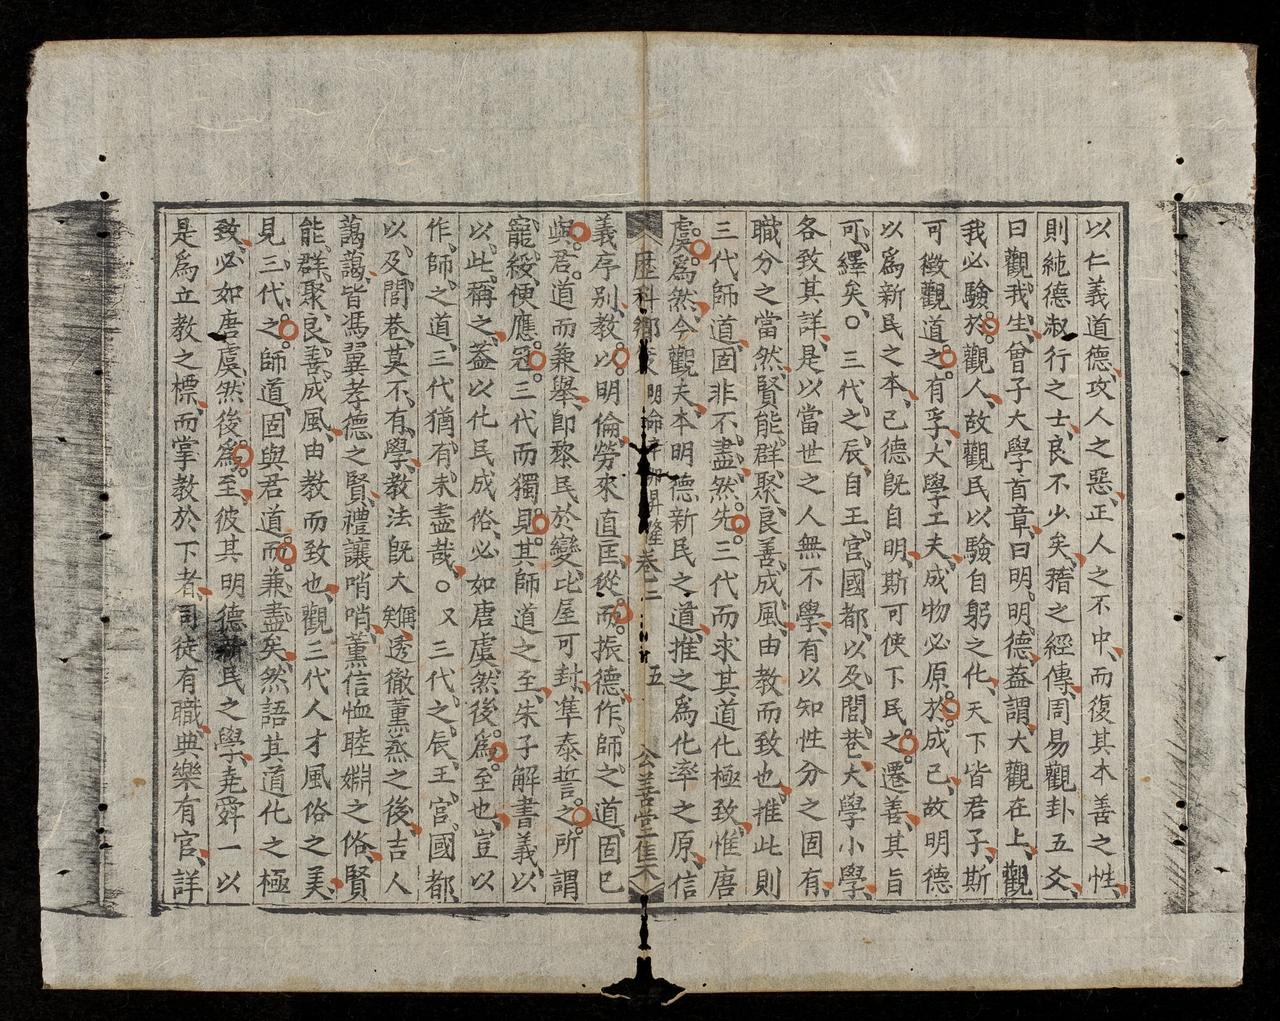 以仁義道德攻人之惡正人之不中而復其本善之性
則純德淑行之士良不少矣藉之經傳周易觀卦五爻
曰觀我生曾子大學首章曰明明德蓋謂大觀在上觀
我必驗於觀人故觀民以驗自躬之化天下皆君子斯
可徵觀道之有孚大學工夫成物必原於成己故明德
以爲新民之本己德旣自明斯可使下民之遷善其旨
可繹矣○三代之辰自王宮國都以及閭巷大學小學
各致其詳是以當世之人無不學有以知性分之固有
職分之當然賢能群聚良善成風由教而致也推此則
三代師道固非不盡然先三代而求其道化極致惟唐
虞爲然今觀夫本明德新民之道推之爲化率之原信
歷科鄉 明倫 卷二 五 公善堂
義序別教以明倫勞來直匡從而振德作師之道固已
與君道而兼舉卽黎民於變比屋可封準泰誓之所謂
寵綏便應冠三代而獨見其師道之至朱子解書義以
以此稱之蓋以化民成俗必如唐虞然後爲至也豈以
作師之道三代猶有未盡哉○又三代之辰王宮國都
以及閭巷莫不有學教法旣大備矣透徹薰蒸之後吉人
藹藹皆馮翼孝德之賢禮讓哨哨薰信恤睦婣之俗賢
能群聚良善成風由教而致也觀三代人才風俗之美
見三代之師道固與君道而兼盡矣然語其道化之極
致必如唐虞然後爲至彼其明德新民之學堯舜一以
是爲立教之標而掌教於下者司徒有職典樂有官詳